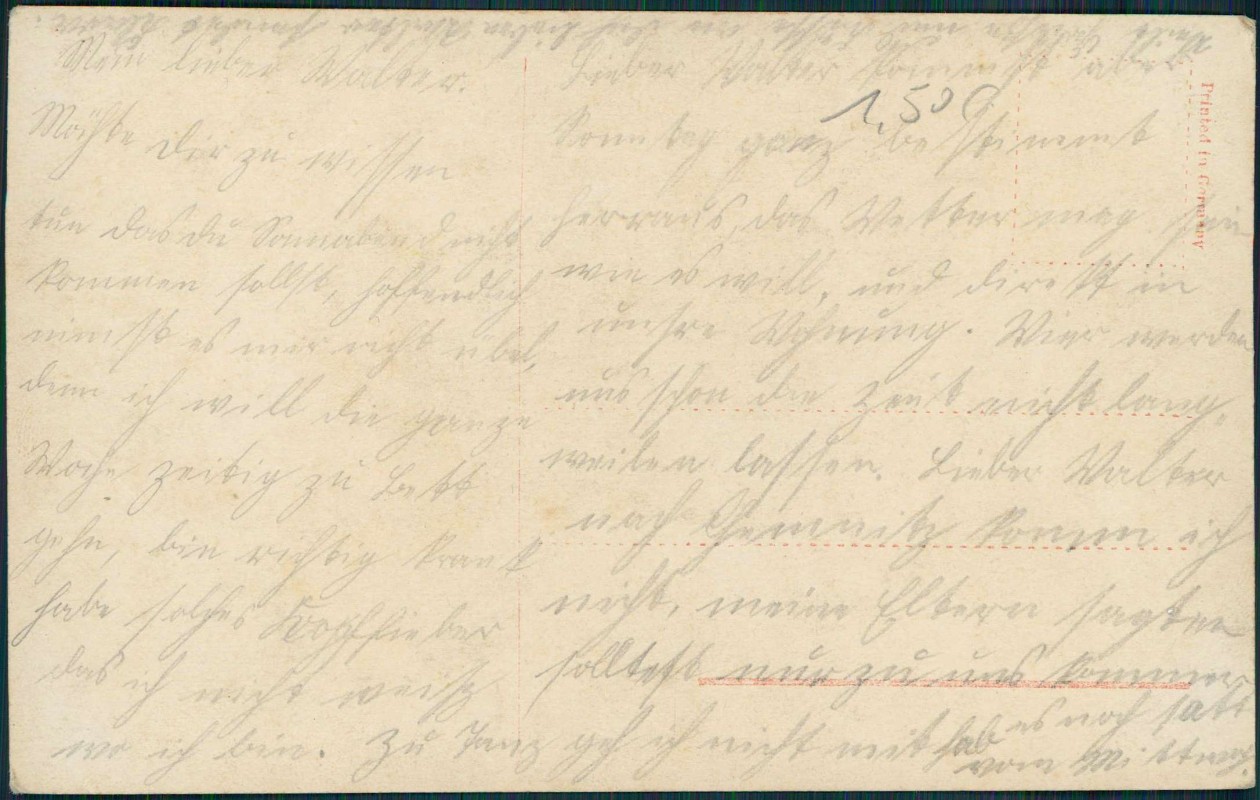 Mein lieber Walter.
Möchte Dir zu wissen
tun das du Sonnabend nicht
kommen sollst, hoffendlich
nimst es mir nicht übel,
denn ich will die ganze
Woche zeitig zu Bett
gehn, bin richtig krank
habe solches Kopffieber
das ich nicht weiß
wo ich bin. Zu Tanz geh ich nicht mit hab es noch satt
vom Mittwoch.
Lieber Walter kommst aber
Sonntag ganz bestimmt
herraus, das Wetter mag sein
wie es will, und direkt in
unsre Wohnung. Wier werden
uns schon die Zeit nicht lang-
weilen lassen. Lieber Walter
nach Chemnitz komm ich
nicht, meine Eltern sagten
solltest nur zu uns kommen
Grüße und Küsse
1,50
Printed in Germany